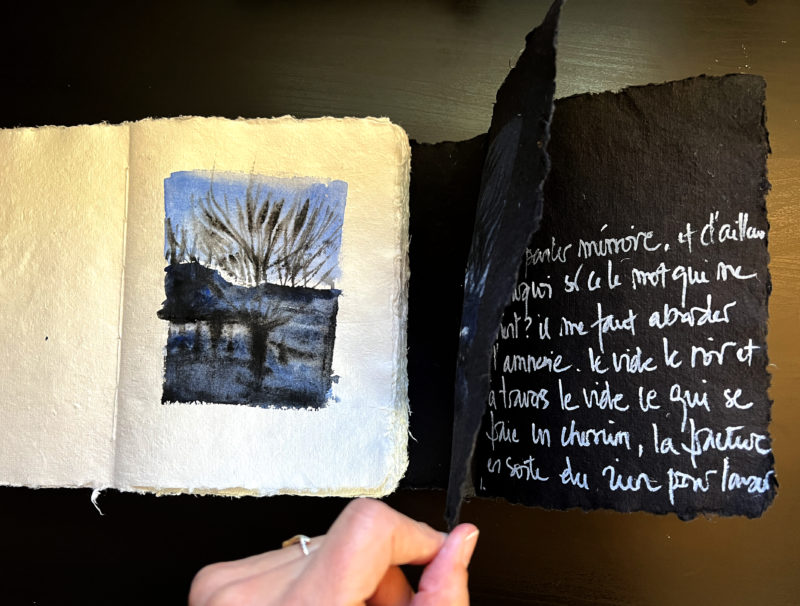 parler mémoire. et d'ailleurs
si ce le mot qui me
il me faut aborder
l'amnésie. le vide le noir et
à travers le vide ce qui se
fraie un chemin, la fracture
en sorte du rien pour